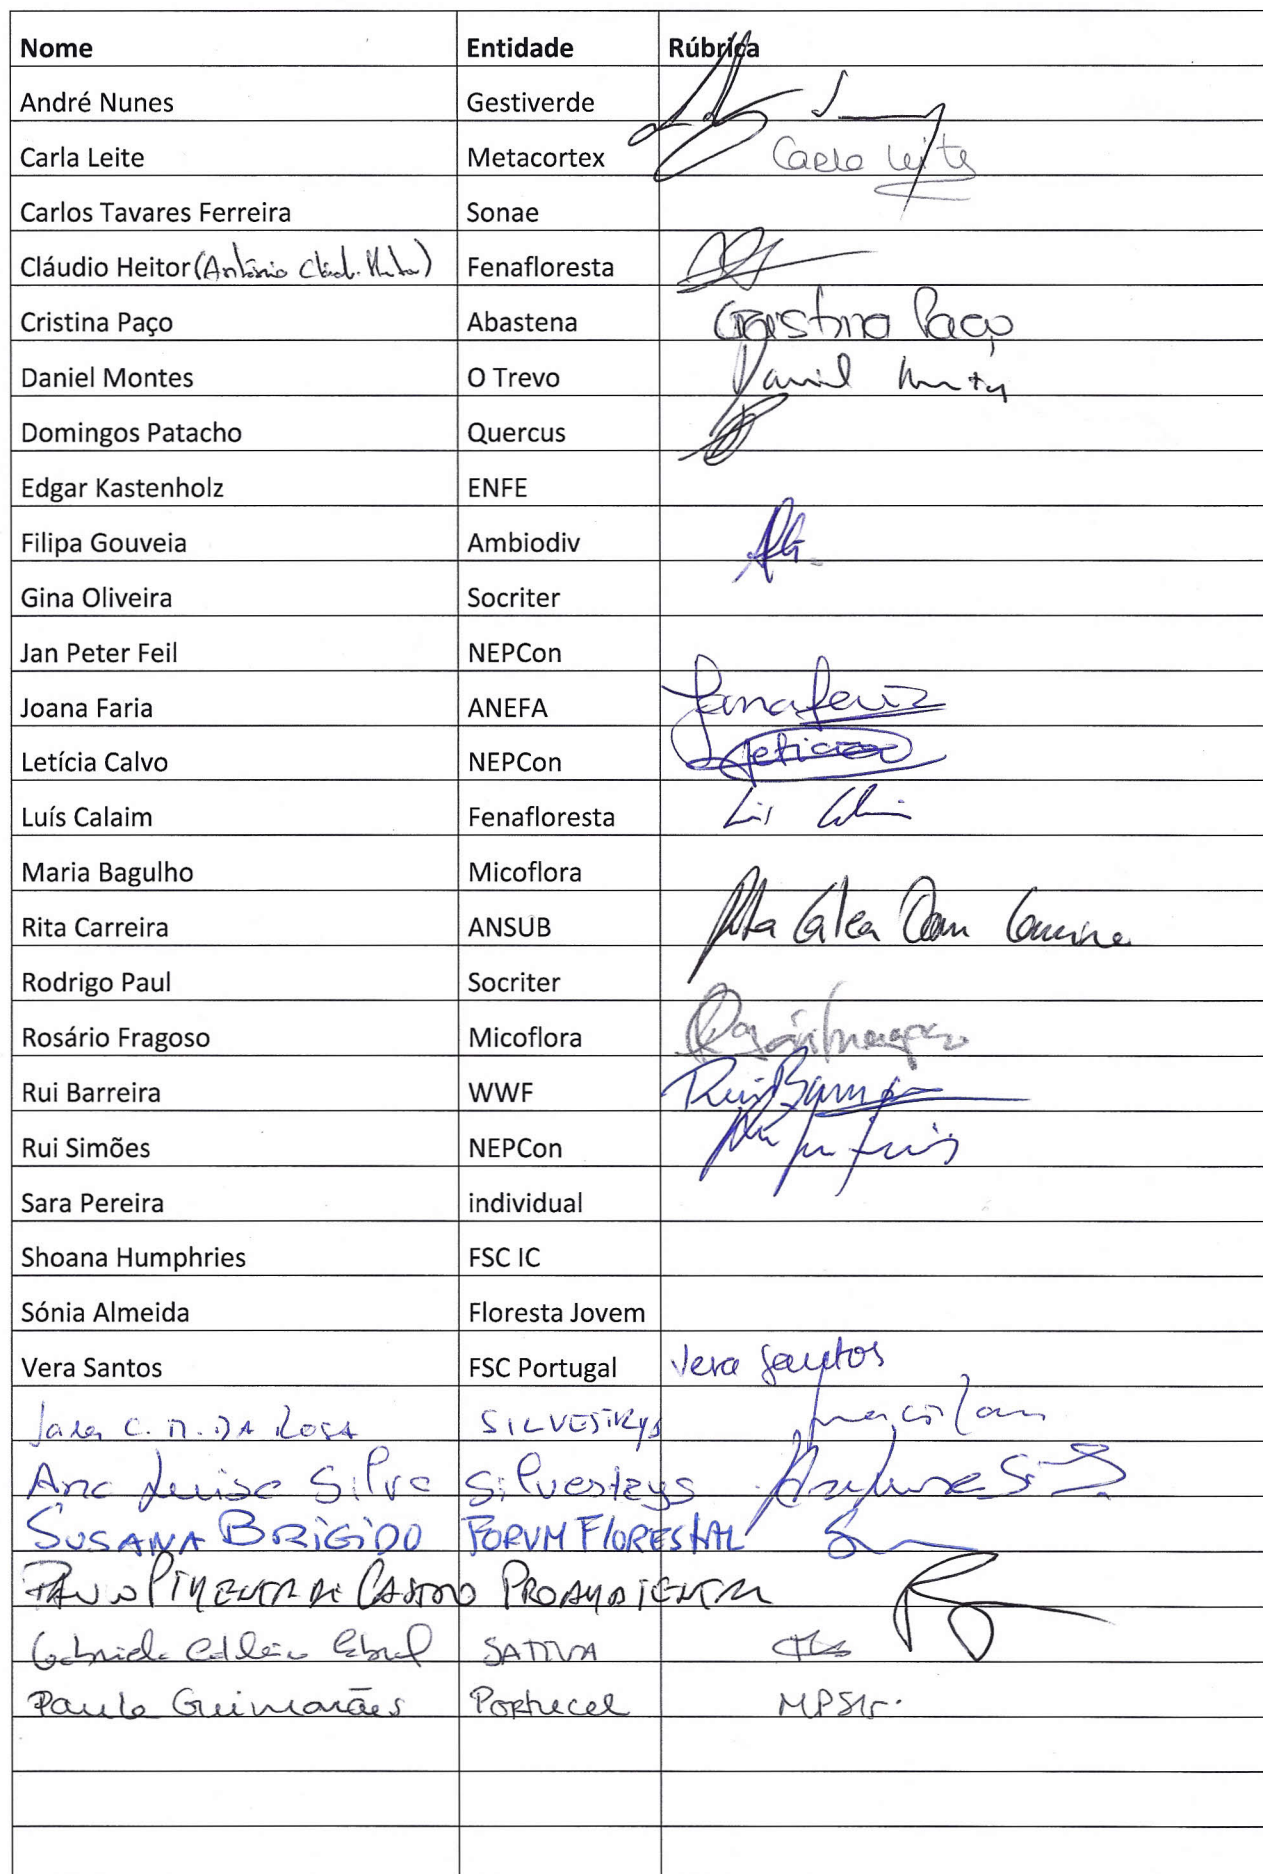 Nome Entidade Rúbrica
André Nunes Gestiverde
Carla Leite Metacortex Carla Leite
Carlos Tavares Ferreira Sonae
Cláudio Heitor (António Cláud. Heitor) Fenafloresta
Cristina Paço Abastena Cristina Paço
Daniel Montes O Trevo Daniel
Domingos Patacho Quercus
Edgar Kastenholz ENFE
Filipa Gouveia Ambiodiv
Gina Oliveira Socriter
Jan Peter Feil NEPCon
Joana Faria ANEFA Joana Faria
Letícia Calvo NEPCon Leticia
Luís Calaim Fenafloresta Luís
Maria Bagulho Micoflora
Rita Carreira ANSUB Rita
Rodrigo Paul Socriter
Rosário Fragoso Micoflora
Rui Barreira WWF Rui
Rui Simões NEPCon
Sara Pereira individual
Shoana Humphries FSC IC
Sónia Almeida Floresta Jovem
Vera Santos FSC Portugal Vera Santos
C. M. DA ROSA SILVESTRYS
Ana Luisa Silva Silvestrys
SUSANA BRÍGIDO FORUM FLORESTAL
PIMENTA DE CASTRO PROAMBIENTAL
Gabriela SATIVA
Paula Guimarães Portucel